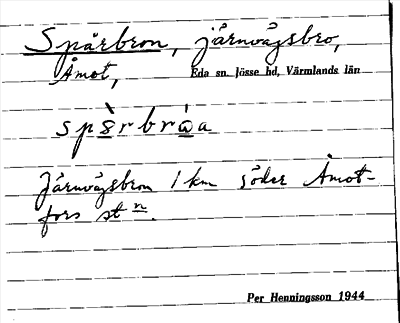 Spärbron, järnvägsbro,
Åmot,
Eda sn. Jösse hd, Värmlands län
Järnvägsbron 1 km söder Åmot-
fors stn.
Per Henningsson 1944